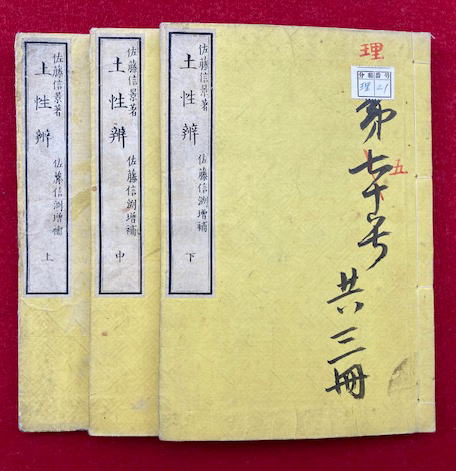 佐藤信景著
土性辨
佐藤信淵增補
上
佐藤信景著
土性辨
佐藤信淵增補
中
佐藤信景著
土性辨
佐藤信淵增補
下
理
分類番号
理 21
第七十号
五
共三冊